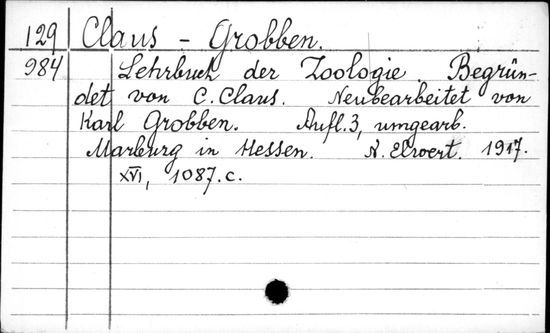 129 Claus - Grobben.
984 Lehrbuch der Zoologie. Begrün-
det von C. Claus. Neubearbeitet von
Karl Grobben. Aufl. 3, umgearb.
Marburg in Hessen. N. Elwert. 1917.
XVI, 1087. c.